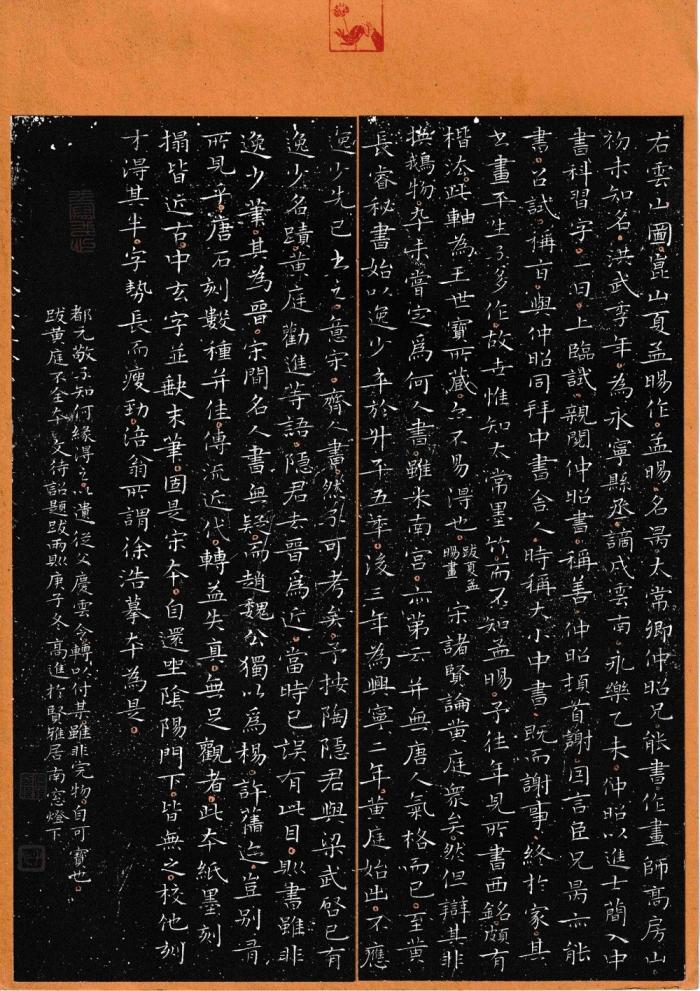 右雲山圖崑山夏孟暘作孟暘名昺太常卿仲昭兄能書作畫師高房山
初未知名洪武季年為永寧縣丞謫戍雲南永樂乙未仲昭以進士簡入中
書科習字一日上臨試親閱仲昭書稱善仲昭頓首謝因言臣兄昺亦能
書召試稱旨與仲昭同拜中書舍人時稱大小中書既而謝事終於家其
書畫平生不多作故世惟知太常墨竹而不知孟暘予往年見所書西銘頗有
楷法此軸為王世寶所藏尤不易得也
跋夏孟
暘畫
宋諸賢論黄庭衆矣然但辯其非
換鵝物卒未嘗定為何人書雖米南宫亦第云并無唐人氣格而已至黄
長睿秘書始以逸少卒於升平五年後三年為興寧二年黄庭始出不應
逸少先已書之意宋齊人書然引可考矣予按陶隱君與梁武啓已有
逸少名蹟黄庭勸進等語隱君去晉為近當時已誤有此目則書雖非
逸少筆其為晉宋間名人書無疑而趙魏公獨以為楊許舊迹豈别有
所見乎唐石刻數種并佳傳流近代轉益失真無足觀者此本紙墨刻
搨皆近古中玄字並缺末筆固是宋本自還坐陰陽門下皆無之校他刻
才得其半字勢長而瘦勁涪翁所謂徐浩摹本為是
都元敬不知何緣得之以遺從父慶雲今轉以付某雖非完物自可寶也
跋黄庭不全本 文待詔題跋兩則庚子冬高進於賢雅居南窓燈下